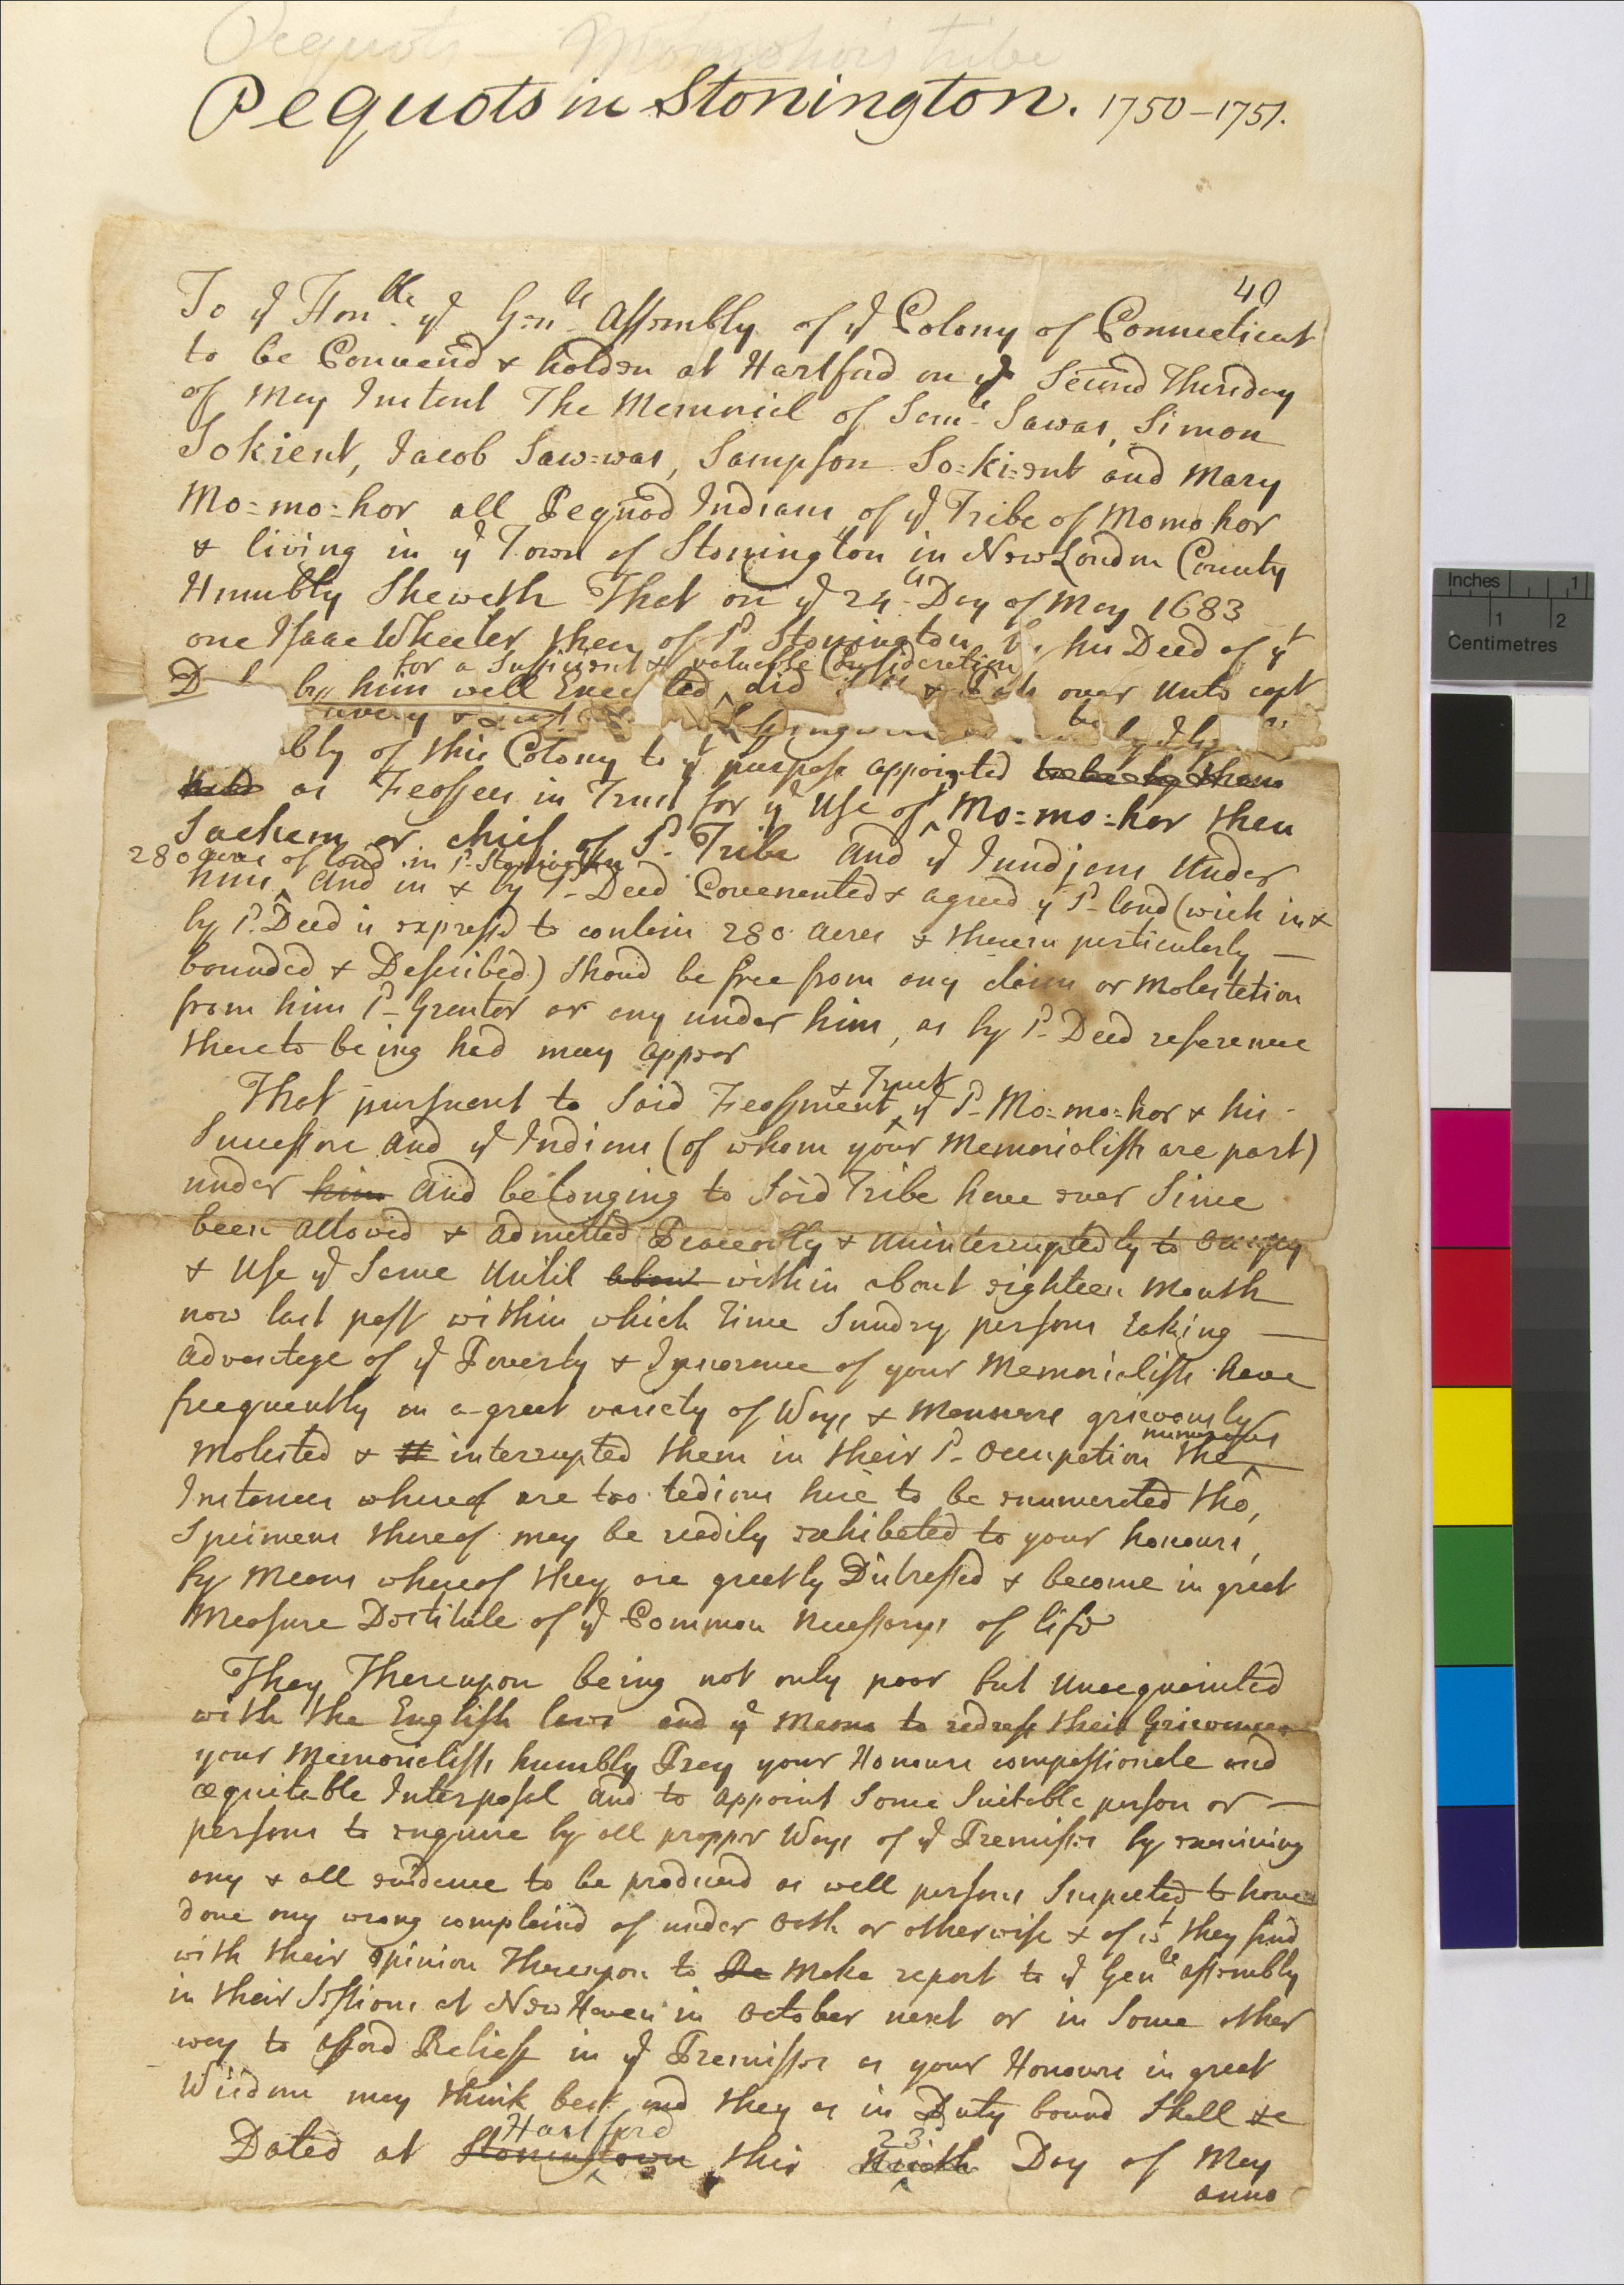 Pequots — Momohor's tribe
Pequots in Stonington. 1750–1751.
40
To ye Honble ye Genll Assembly of ye Colony of Connecticut
to be Convend & holden at Hartford on ye Second Thursday
of May Instant The Memorial of Saml Sawas, Simon
Sokient, Jacob Saw=was, Sampson So=ki=ent and Mary
Mo=mo=hor all Pequod Indians of ye Tribe of Momohor
& living in ye Town of Stonington in New London County
Humbly Sheweth That on ye 24th Day of May 1683
one Isaac Wheeler then of sd Stonington by his Deed of yt
for a Sufficient & valuable Consideration
D by him well Executed did & over unto capt
avery &
bly of this Colony to yt purpose appointed to be by them
held as Feoffees in Trust for ye Use of Mo=mo=hor then
Sachem or chief of sd Tribe and ye Inndjans Under
280 acres of land in sd Stonington
him, and in & by sd Deed Covenented & agreed yt sd land (wich in &
by sd Deed is expressd to contain 280 acres & therein perticularly
bounded & Described) Shoud be free from any claim or Molestation
from him sd Grantor or any under him, as by sd Deed reference
thereto being had may apper
& Trust
That pursuant to Said Feoffment ye sd Mo=mo=hor & his
Successors and ye Indians (of whom your Memorialists are part)
under him and belonging to Said Tribe have ever Since
been allowd & admitted Peaceably & uninterruptedly to occupy
& Use ye Same Until abou within about eighteen Month
now last past within which Time Sundry persons taking
advantage of ye Poverty & Ignorance of your Memorialists have
freequently in a great variety of Ways & Mannors grievously
numerous
Molested & interrupted them in their sd Occupation the
Instances whereof are too tedious here to be enumerated tho,
Speimens thereof may be redily exhibeted to your honours,
by Means whereof they are greatly Distressed & become in great
Measure Destitute of ye Common necessarys of life
They Thereupon being not only poor but Unacquainted
with the English laws and ye Means to redress their Grievances
your Memorialists humbly Pray your Honours compassionate and
æquitable Interposal and to appoint Some Suitable person or
persons to enquire by all propper Ways of ye Premisses by examining
any & all evidence to be produced as well persons Suspected to have
done any wrong complaind of under Oath or otherwise & of wt they find
with their opinion Thereupon to Re Make report to ye Genll assembly
in their Sessions at New Haven in October next or in Some other
way to afford Relieff in ye Premisses as your Honours in great
Wisdom may think best and they as in Duty bound Shall &c
Hartford 23.
Dated at Stoningtown this Ninth Day of May
anno